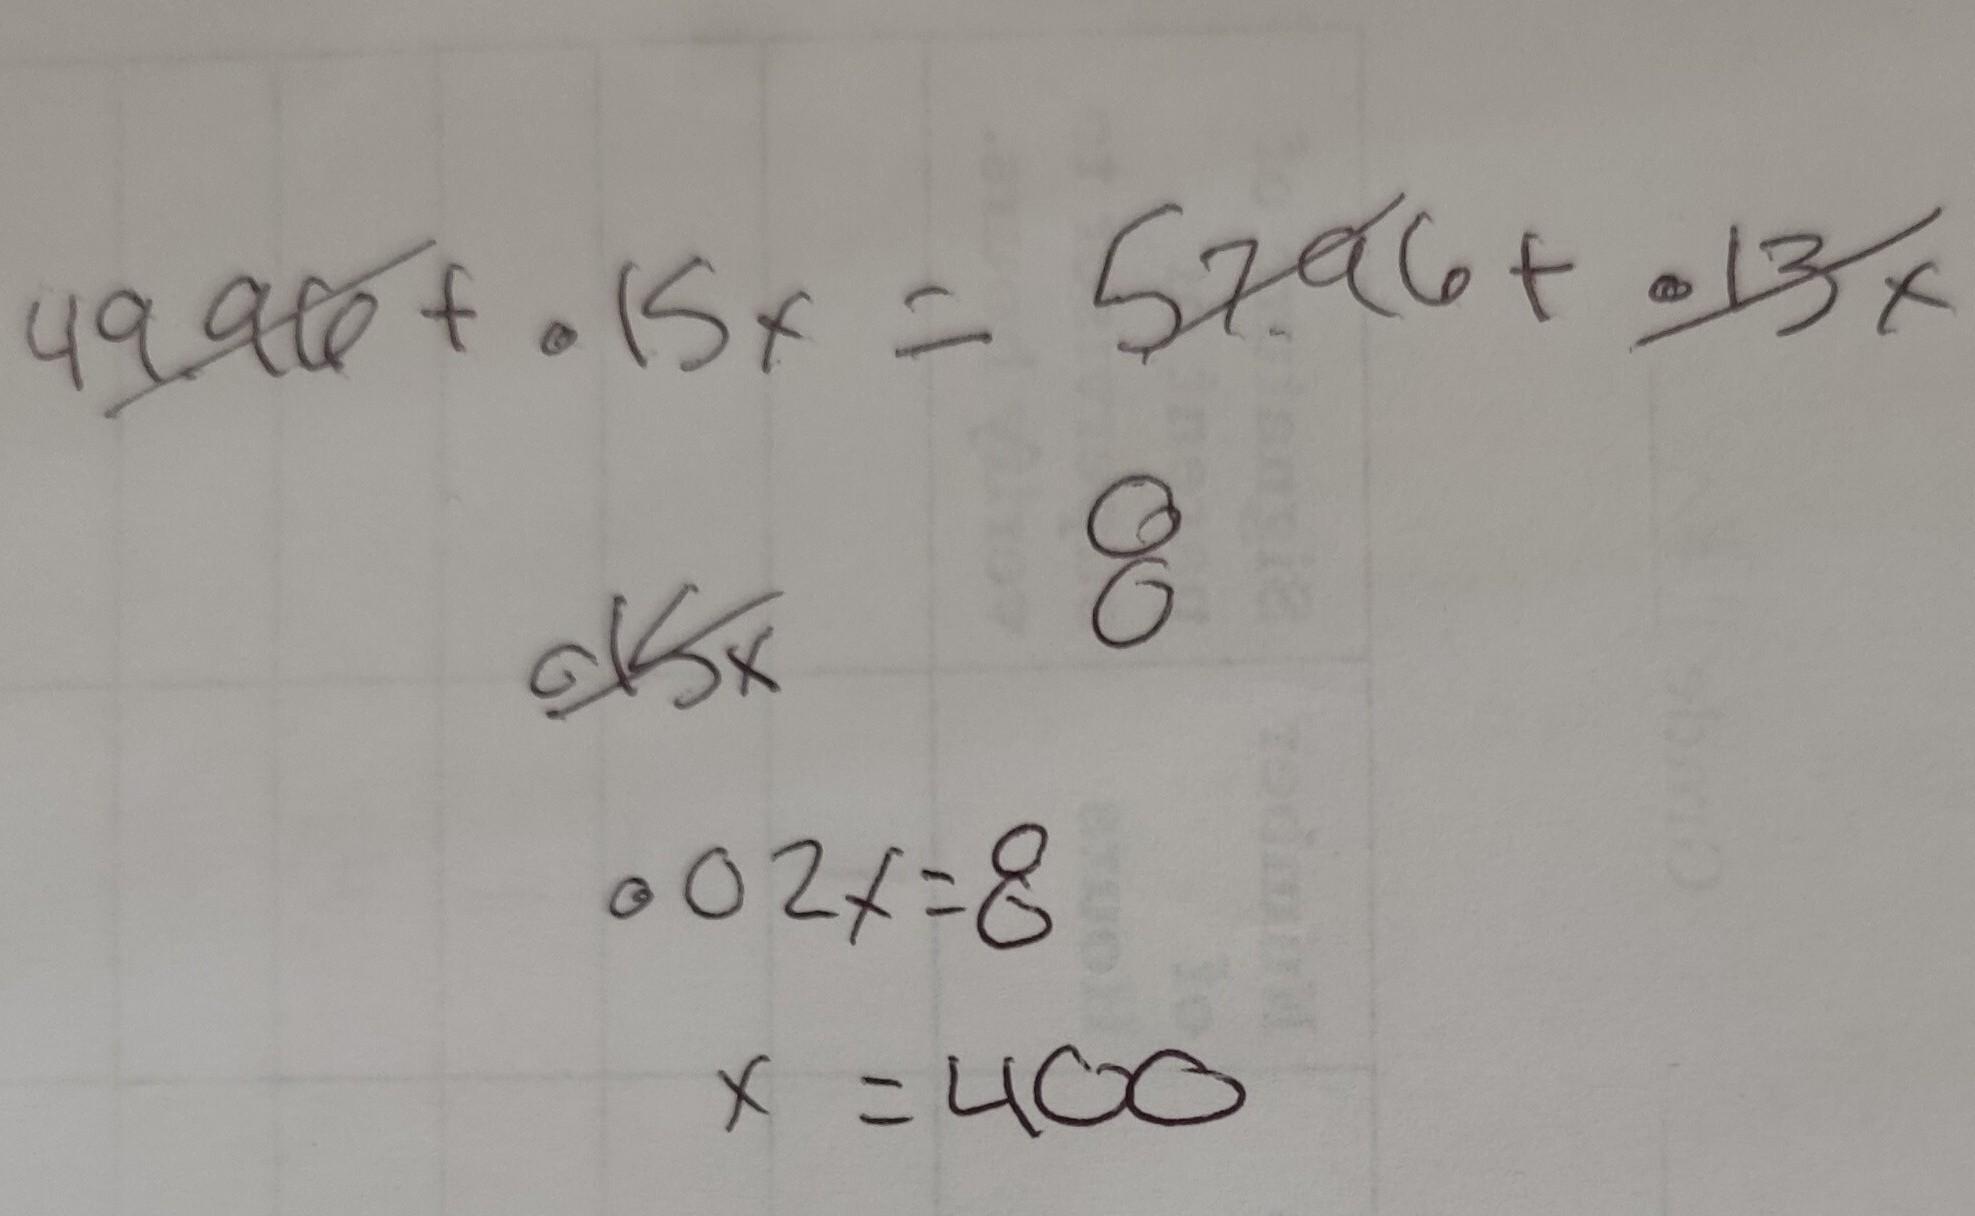 4996 + .15x = 5796 + .13x
8
.15x
.02x = 8
x = 400